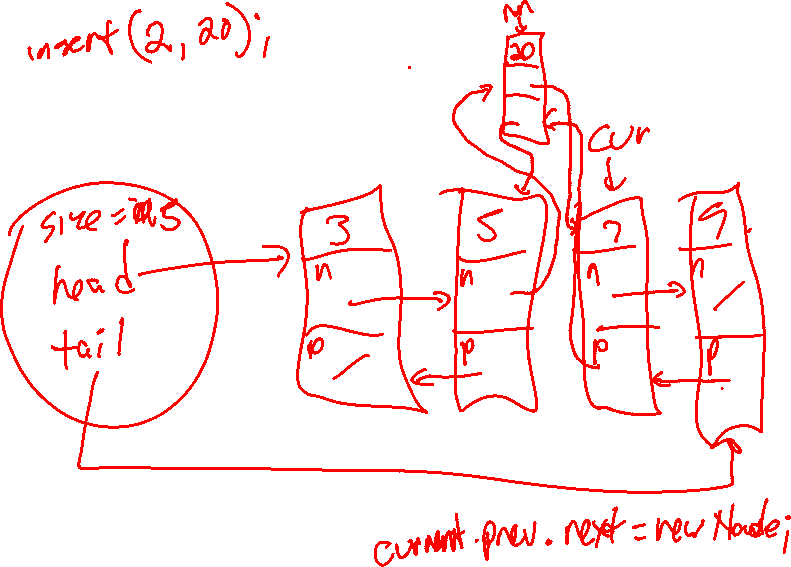 insert(2, 20);
nn
20
cur
size = 5
head
tail
3
n
p
5
n
p
7
n
p
9
n
p
current.prev.next = newNode;